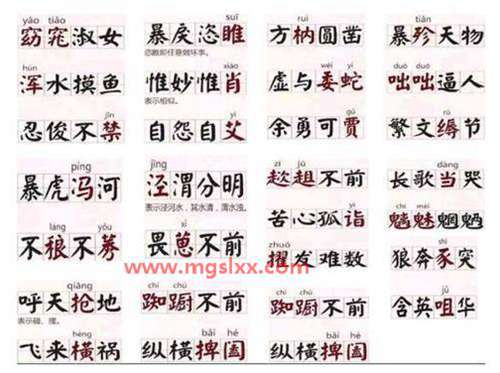 yǎo tiǎo suī ruì tiǎn
窈窕淑女 暴戾恣睢 方枘圆凿 暴殄天物
恣睢即任意做坏事。
hún xiào wēi yí duō duō
浑水摸鱼 惟妙惟肖 虚与委蛇 咄咄逼人
表示相似。
jīn yì rù
忍俊不禁 自怨自艾 余勇可贾 繁文缛节
píng jīng zī jū dàng
暴虎冯河 泾渭分明 趑趄不前 长歌当哭
表示泾河水，其水清，渭水浊。
láng yǒu xǐ yì
不稂不莠 畏葸不前 苦心孤诣 魑魅魍魉
zhuó
擢发难数 狼奔豕突
www.mgslxx.com
qiāng chí chú chí chú jǔ
呼天抢地 踟蹰不前 踟蹰不前 含英咀华
表示碰、撞。
hèng bǎi hé bǎi hé
飞来横祸 纵横捭阖 纵横捭阖